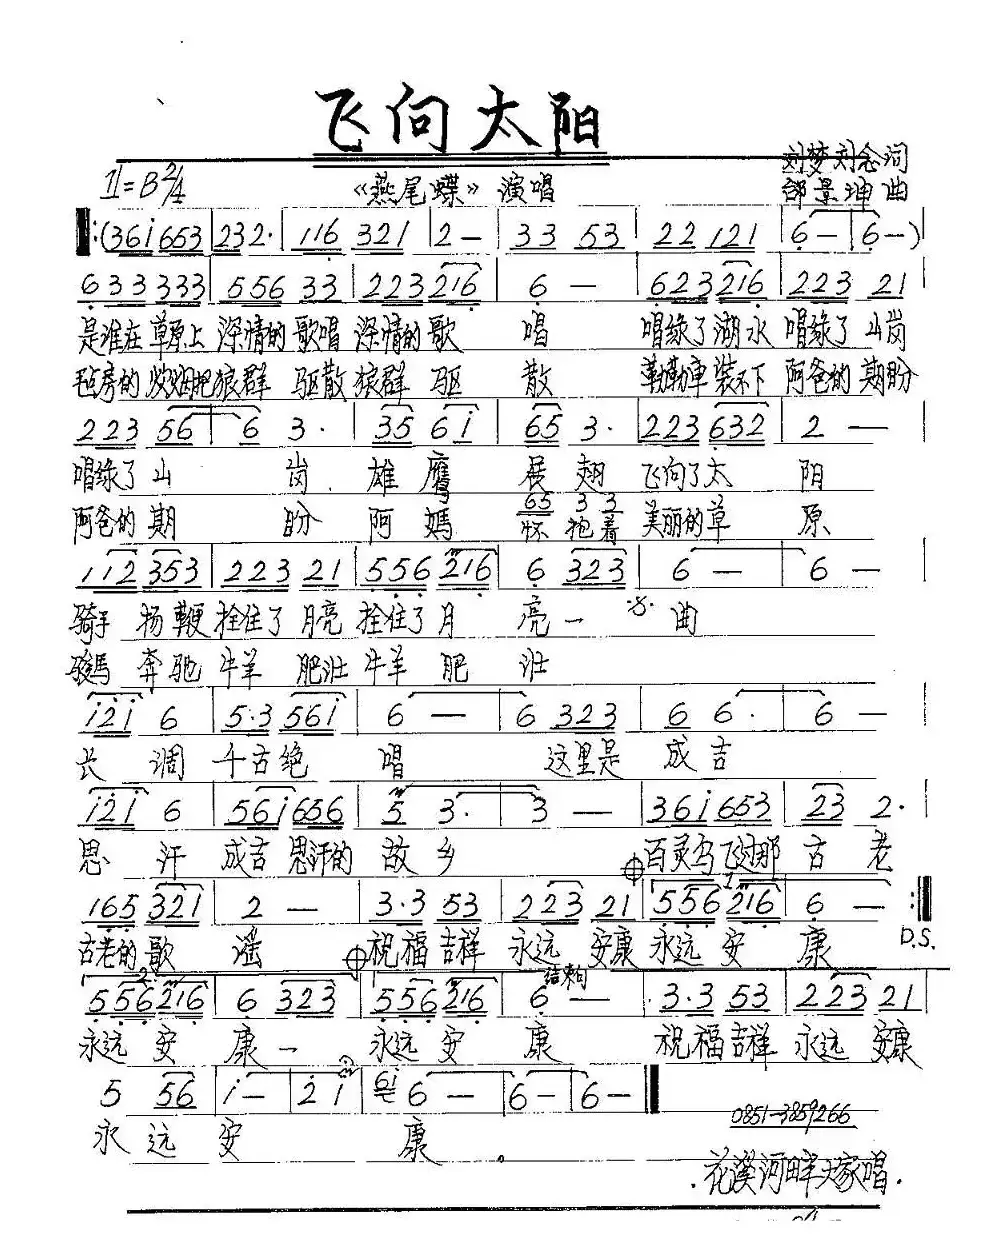 飞向太阳
刘梦刘念词
1=B 2/4
《燕尾蝶》演唱
邰景坤曲
(36i 653 | 232· | 116 321 | 2 — | 33 53 | 22 121 | 6 — | 6 —)
633 333 | 556 33 | 223 216 | 6 — | 623 216 | 223 21
是谁在草原上 深情的歌唱 深情的歌 唱 唱绿了湖水 唱绿了山岗
毡房的炊烟把狼群 驱散 狼群 驱 散 勒勒車装不下 阿爸的期盼
223 56 | 6 3· | 35 6i | 65 3· | 223 632 | 2 —
唱绿了山 岗 雄鹰 展翅 飞向了太 阳
65 33
阿爸的期 盼 阿媽 怀抱着 美丽的草 原
112 353 | 223 21 | 556 216 | 6 323 | 6 — | 6 —
骑手 扬鞭 拴住了月亮 拴住了月 亮 一 曲
駿馬 奔驰 牛羊 肥壮 牛羊 肥 壮
i2i 6 | 5·3 56i | 6 — | 6 323 | 6 6· | 6 —
长 调 千古绝 唱 这里是 成吉
i2i 6 | 56i 656 | 5 3· | 3 — | 36i 653 | 23 2·
思 汗 成吉思汗的 故乡 百灵鸟飞过那 古老
1
165 321 | 2 — | 3·3 53 | 223 21 | 556 216 | 6 — :
D.S.
古老的歌 谣 祝福吉祥 永远 安康 永远 安 康
2 结束句
556 216 | 6 323 | 556 216 | 6 — | 3·3 53 | 223 21
永远 安 康 一 永远 安 康 祝福吉祥 永远 安康
5 56 | i — | 2 i | 6i 6 — | 6 — | 6 —
永 远 安 康
0851-3859266
花溪河畔大家唱.